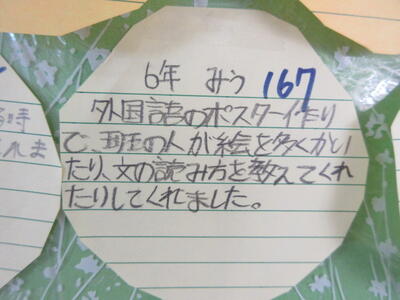 6年 みう 167
外国語のポスター作り
で、班の人が絵を多くかい
たり、文の読み方を教えてくれ
たりしてくれました。
時
れま